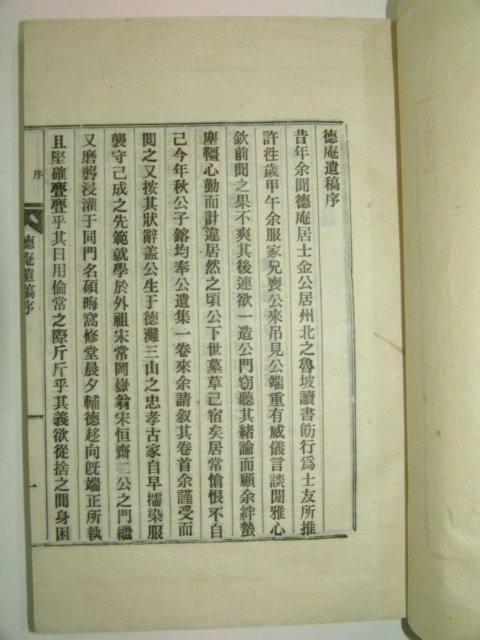 德庵遺稿序
昔年余聞德庵居士金公居州北之魯坡讀書飭行爲士友所推
許徃歲甲午余服家兄喪公來吊見公端重有威儀言談閒雅心
欽前聞之果不爽其後連欲一造公門竊聽其緖論而顧余絆蟄
塵韁心勤而計違居然之頃公下世墓草已宿矣居常愴恨不自
已今年秋公子鎔均奉公遺集一卷來余請叙其卷首余謹受而
閱之又按其狀辭盖公生于德灘三山之忠孝古家自早擩染服
襲守己成之先範就學於外祖宋常岡嶽翁宋恒齋二公之門繼
又磨礱浸灌于同門名碩晦窩修堂晨夕輔德趍向旣端正所執
且堅確亹亹乎其日用倫常之際斤斤乎其義欲從捨之間身困
德庵遺稿序
序
一